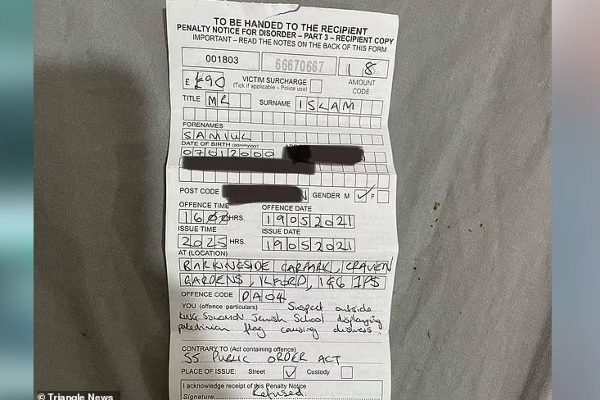 TO BE HANDED TO THE RECIPIENT
PENALTY NOTICE FOR DISORDER – PART 3 – RECIPIENT COPY
IMPORTANT – READ THE NOTES ON THE BACK OF THIS FORM
001803 66670667 18
£ £90 VICTIM SURCHARGE
(Tick if applicable – Police use) AMOUNT CODE
TITLE MR SURNAME ISLAM
FORENAMES
SAMIUL
DATE OF BIRTH
07012000
POST CODE N GENDER M ✓ F
OFFENCE TIME OFFENCE DATE
HRS. 19052021
ISSUE TIME ISSUE DATE
2025 HRS. 19052021
AT (LOCATION)
BARKINGSIDE CARPARK, CRAVEN
GARDENS, ILFORD, IG6 1PS
OFFENCE CODE DA04
YOU (offence particulars) Suspect outside
KING SOLOMON Jewish School displaying
palestinian flag causing distress.
CONTRARY TO (Act containing offence)
S5 PUBLIC ORDER ACT
PLACE OF ISSUE: Street ✓ Custody
I acknowledge receipt of this Penalty Notice
Signature Refused.
© Triangle News